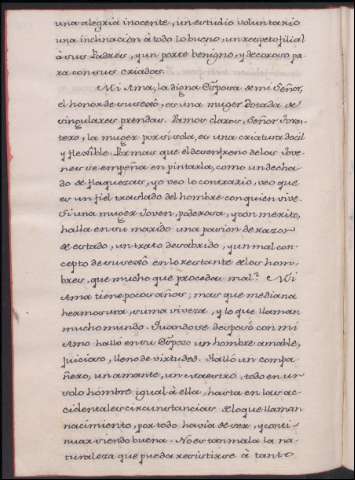 una alegria inocente, un estudio voluntario
una inclinacion à todo lo bueno, un respeto filial
à sus Padres, y un porte benigno, y decoroso pa
ra con sus criados.
Mi Ama, la digna Esposa de mi Señor,
el honor de su sexô, es una muger dotada de
singulares prendas. Hamos claros, Señor Foras-
tero, la muger por si sola, es una criatura docil
y flexible. Por mas que el desenfreno de los Jove-
nes se empeña en pintarla, como un decha-
do de flaquezas, yo veo lo contrario, veo que
es un fiel traslado del hombre con quien vive.
Si una muger Joven, poderosa, y con merito,
halla en su marido una pasion de razon
de estado, un trato desabrido, y un mal con-
cepto de su sexô en lo restante de los hom-
bres, que mucho que proceda mal? Mi
Ama tiene pocos años; mas que mediana
hermosura, suma viveza, y lo que llaman
mucho mundo. Quando se desposò con mi
Amo hallò en su Esposo un hombre amable,
juicioso, lleno de virtudes. Hallò un compa-
ñero, un amante, un maestro, todo en un
solo hombre igual à ella, hasta en las ac-
cidentales circunstancias de lo que llaman
nacimiento, por todo havia de ser, y conti-
nuar siendo buena. No es tan mala la na-
turaleza que pueda resistirse à tanto